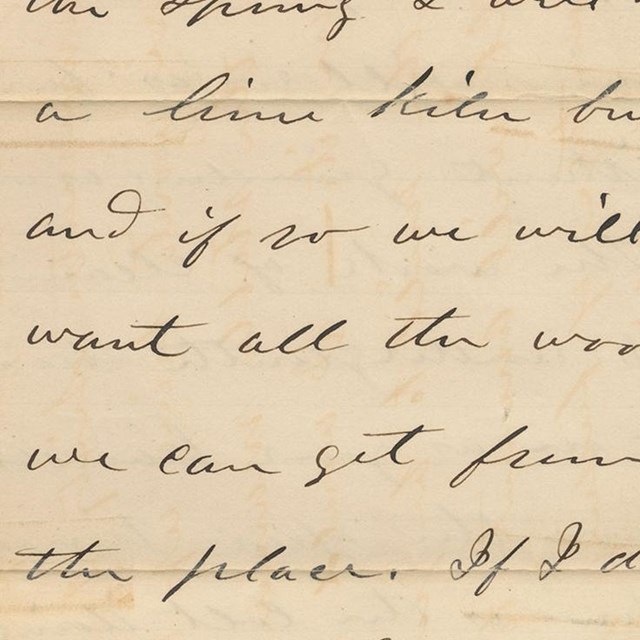 the spring I
a lime kiln
and if so we will
want all the
we can get from
the place. If I